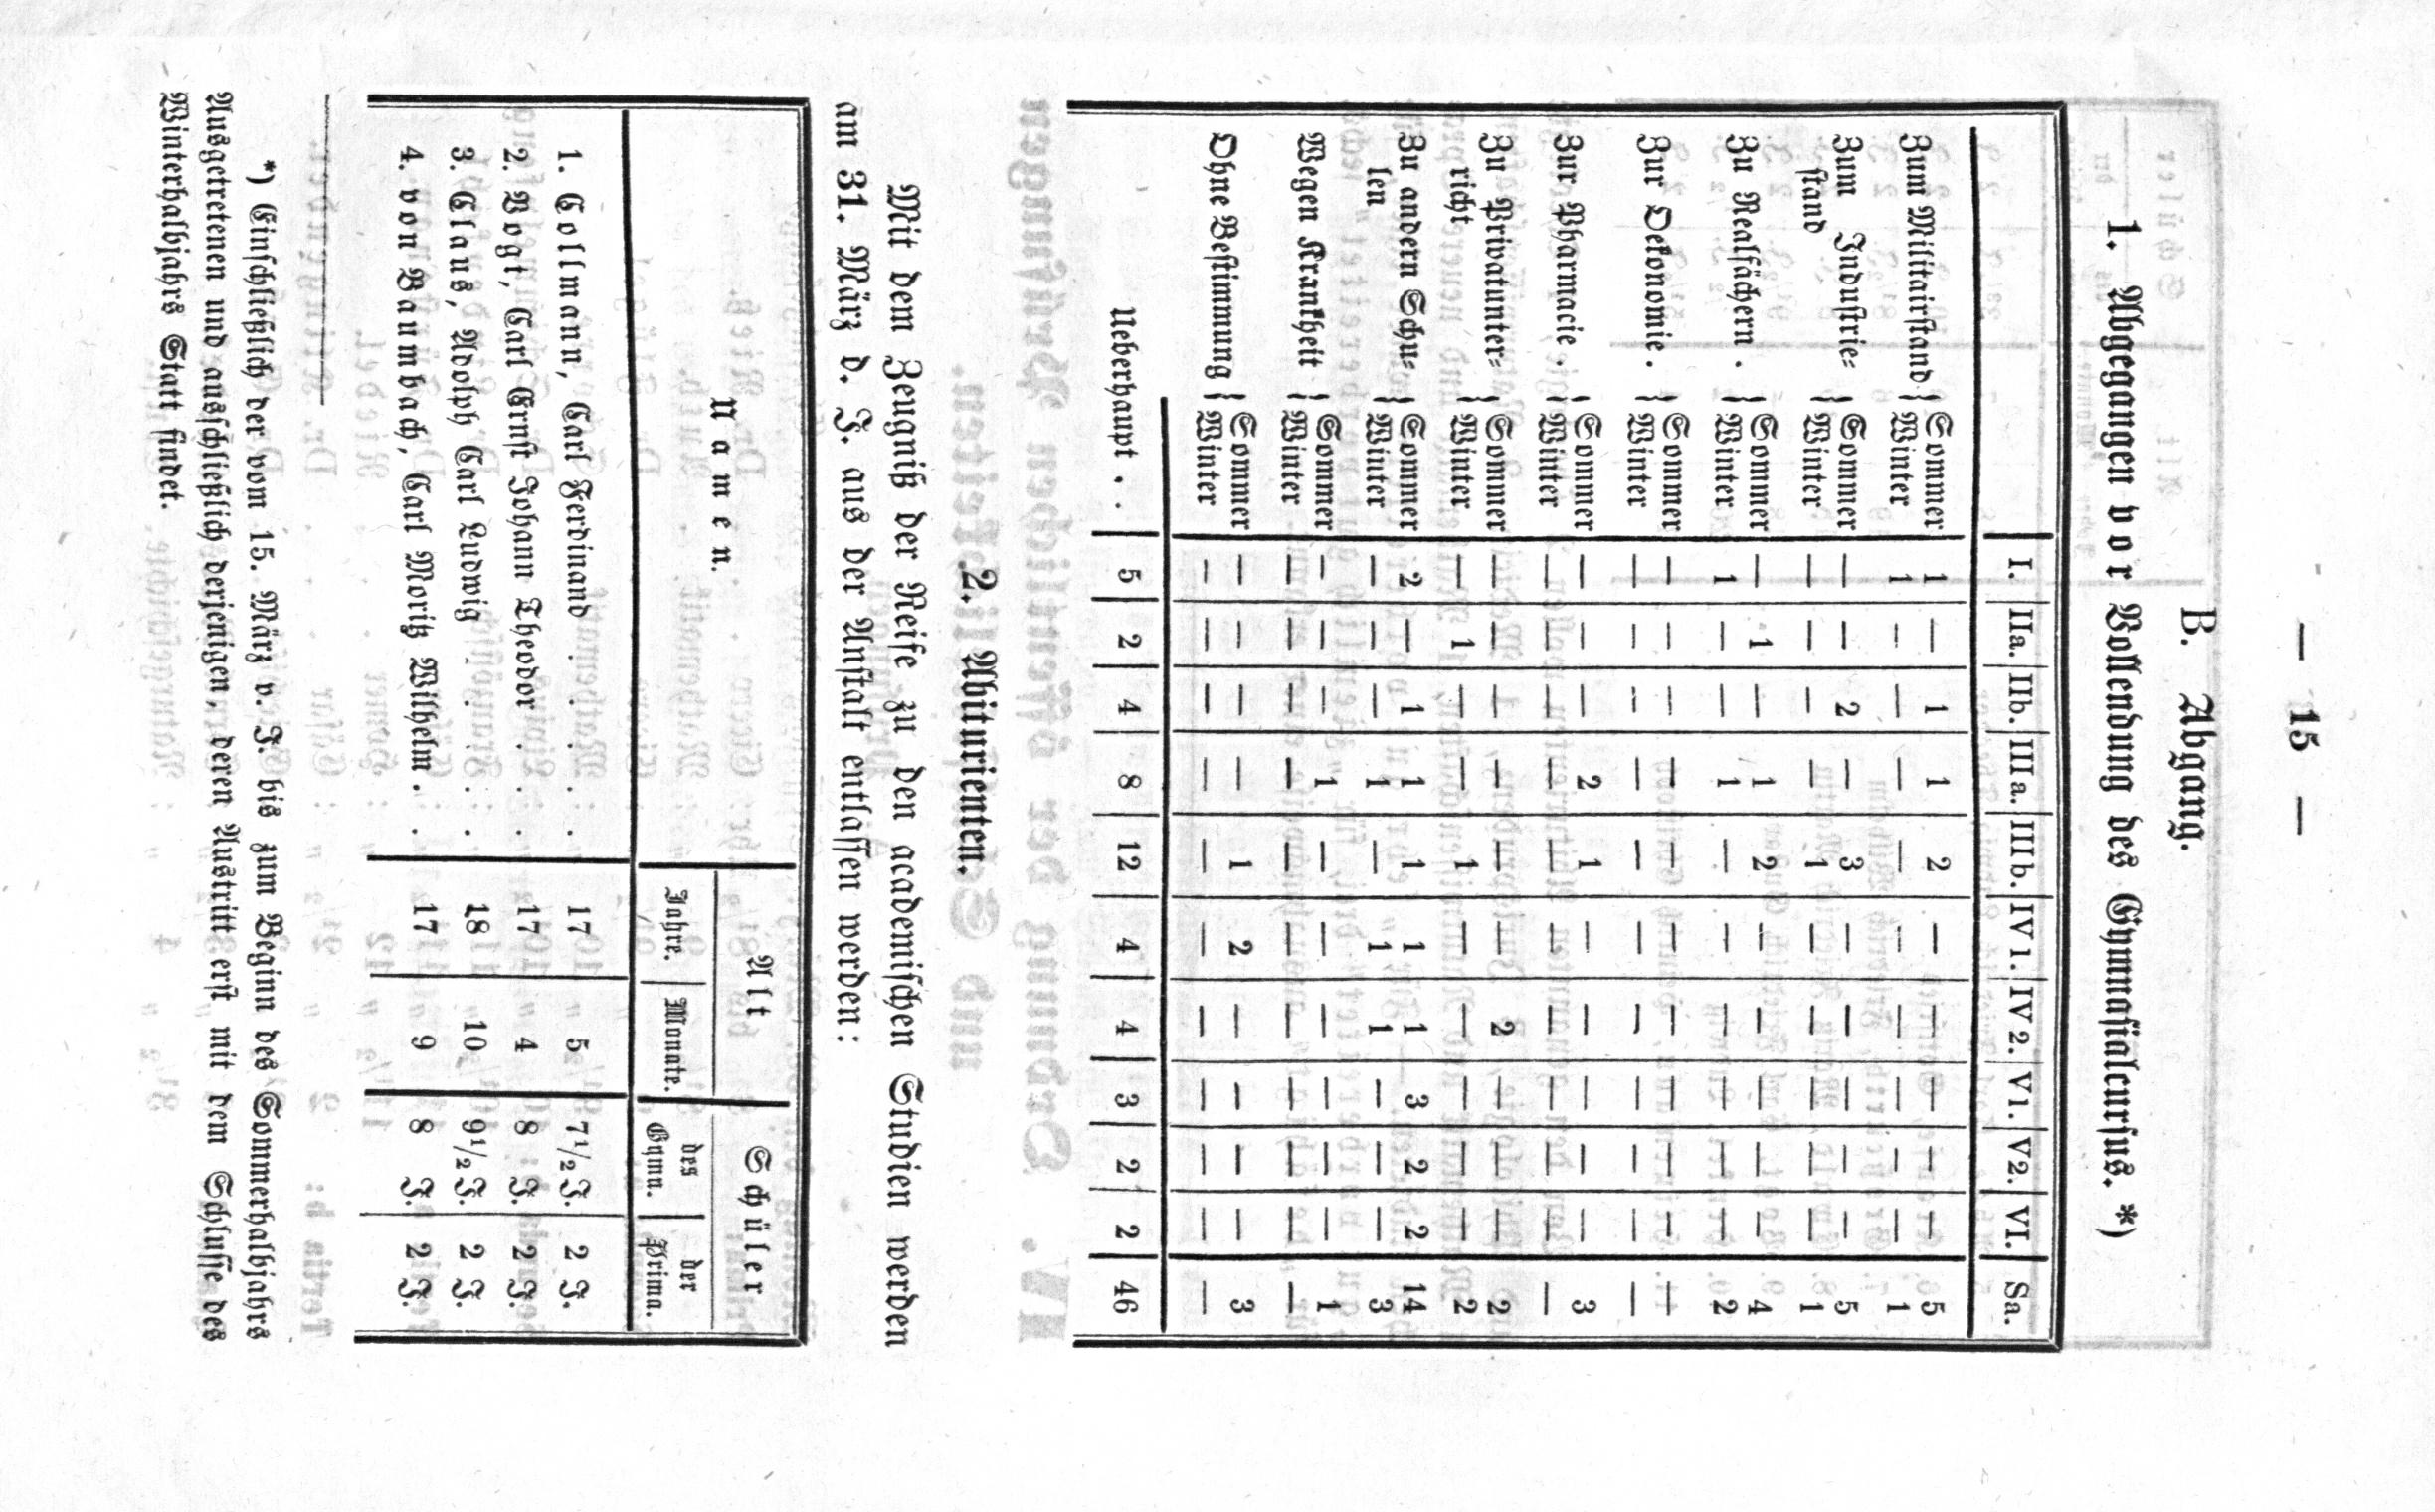 — 15 —
B. Abgang.
1. Abgegangen vor Vollendung des Gymnasialcursus. *)
I. IIa. IIb. IIIa. IIIb. IV 1. IV 2. V1. V2. VI. Sa.
Zum Militairstand { Sommer 1 — 1 1 2 — — — — — 5
Winter 1 — — — — — — — — — 1
Zum Industrie= { Sommer — — 2 — 3 — — — — — 5
stand Winter — — — — 1 — — — — — 1
Zu Realfächern . { Sommer — 1 — 1 2 — — — — — 4
Winter 1 — — 1 — — — — — — 2
Zur Oekonomie . { Sommer — — — — — — — — — — —
Winter — — — — — — — — — — —
Zur Pharmacie . { Sommer — — — 2 1 — — — — — 3
Winter — — — — — — — — — — —
Zu Privatunter= { Sommer — — — — — — 2 — — — 2
richt Winter — 1 — — 1 — — — — — 2
Zu andern Schu= { Sommer 2 — 1 1 1 1 1 3 2 2 14
len Winter — — — 1 — 1 1 — — — 3
Wegen Krankheit { Sommer — — — 1 — — — — — — 1
Winter — — — — — — — — — — —
Ohne Bestimmung { Sommer — — — — 1 2 — — — — 3
Winter — — — — — — — — — — —
Ueberhaupt . . 5 2 4 8 12 4 4 3 2 2 46
2. Abiturienten.
Mit dem Zeugniß der Reife zu den academischen Studien werden
am 31. März d. J. aus der Anstalt entlassen werden:
Namen. Alt Schüler
Jahre. Monate. des Gymn. der Prima.
1. Collmann, Carl Ferdinand . . . . 17 5 7½ J. 2 J.
2. Vogt, Carl Ernst Johann Theodor . . . 17 4 8 J. 2 J.
3. Claus, Adolph Carl Ludwig . . . . 18 10 9½ J. 2 J.
4. von Baumbach, Carl Moritz Wilhelm . . 17 9 8 J. 2 J.
*) Einschließlich der vom 15. März v. J. bis zum Beginn des Sommerhalbjahrs
Ausgetretenen und ausschließlich derjenigen, deren Austritt erst mit dem Schlusse des
Winterhalbjahrs Statt findet.